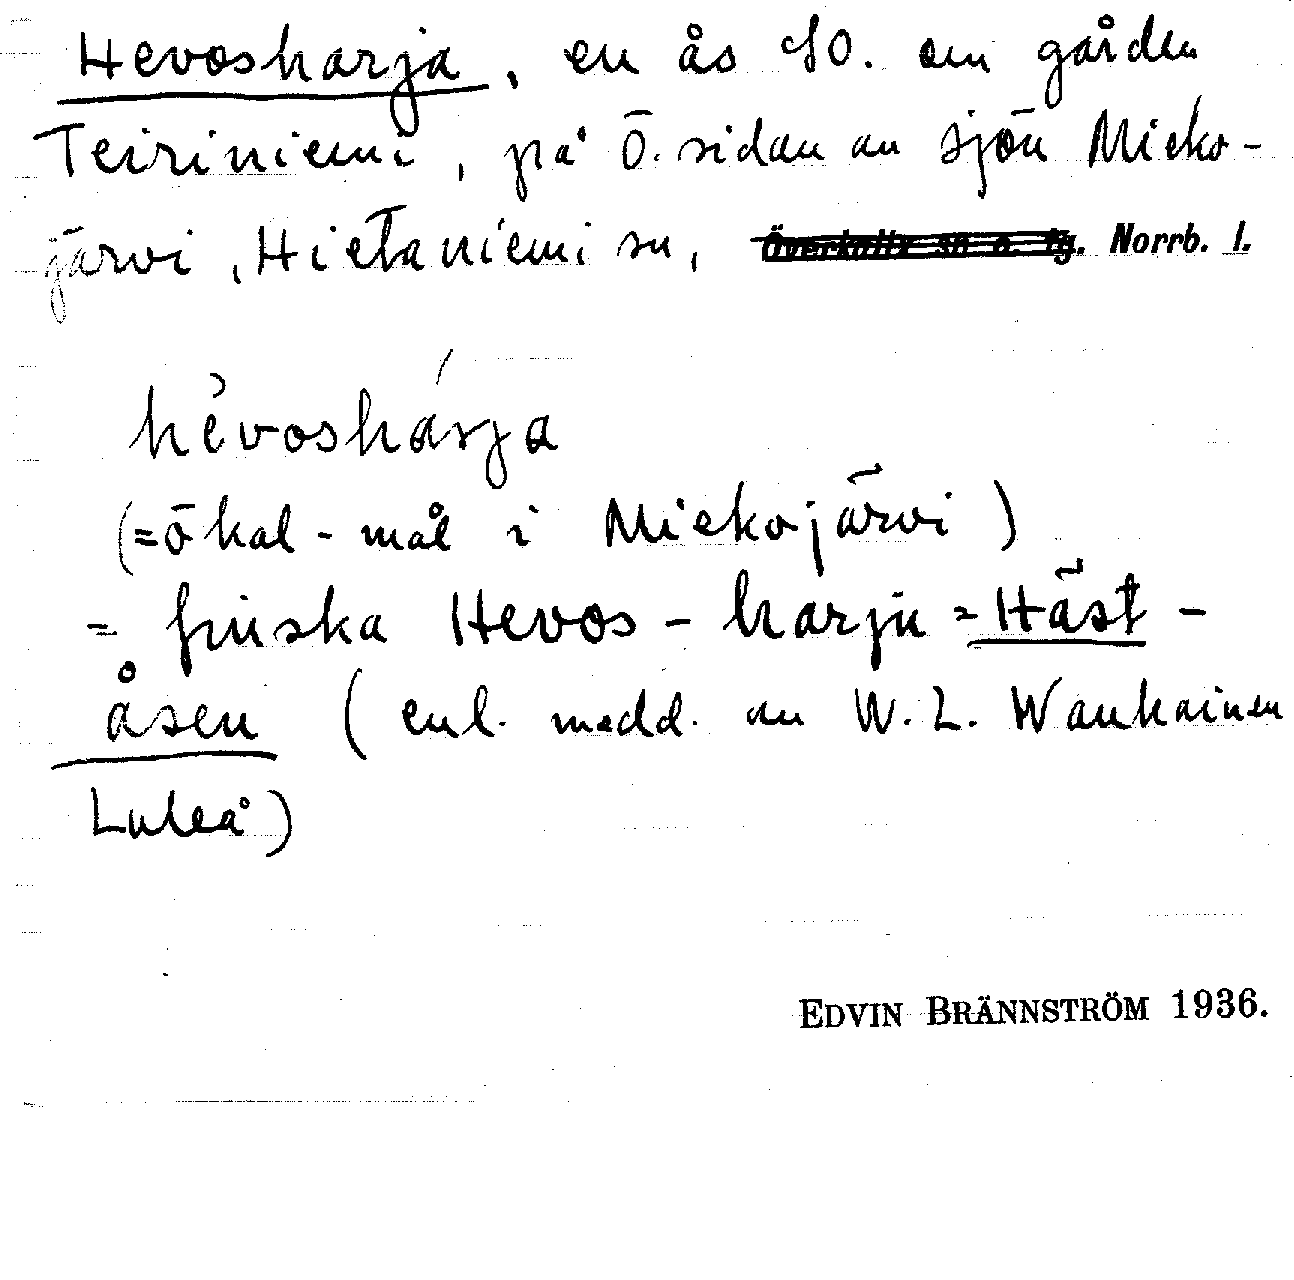 Hevosharja, en ås SO. om gården
Teiriniemi, på Ö. sidan av sjön Mieko-
järvi, Hietaniemi sn, Överkalix sn o. tg. Norrb. l.
hèvoshárja
(=ökal-mål i Miekojärvi)
= finska Hevos-harju = Häst-
åsen (enl. medd. av W. L. Wanhainen
Luleå)
EDVIN BRÄNNSTRÖM 1936.